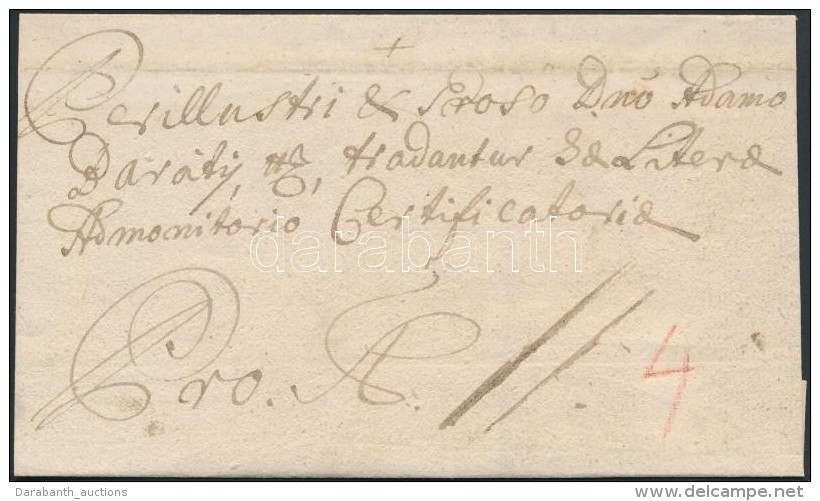 Perillustri & Groso Dnō Adamo
Baráty, tradantur Hæ Literæ
Admonitorio Certificatoriæ
Pro. A.
4
darabanth
Darabanth_auctions
www.delcampe.net